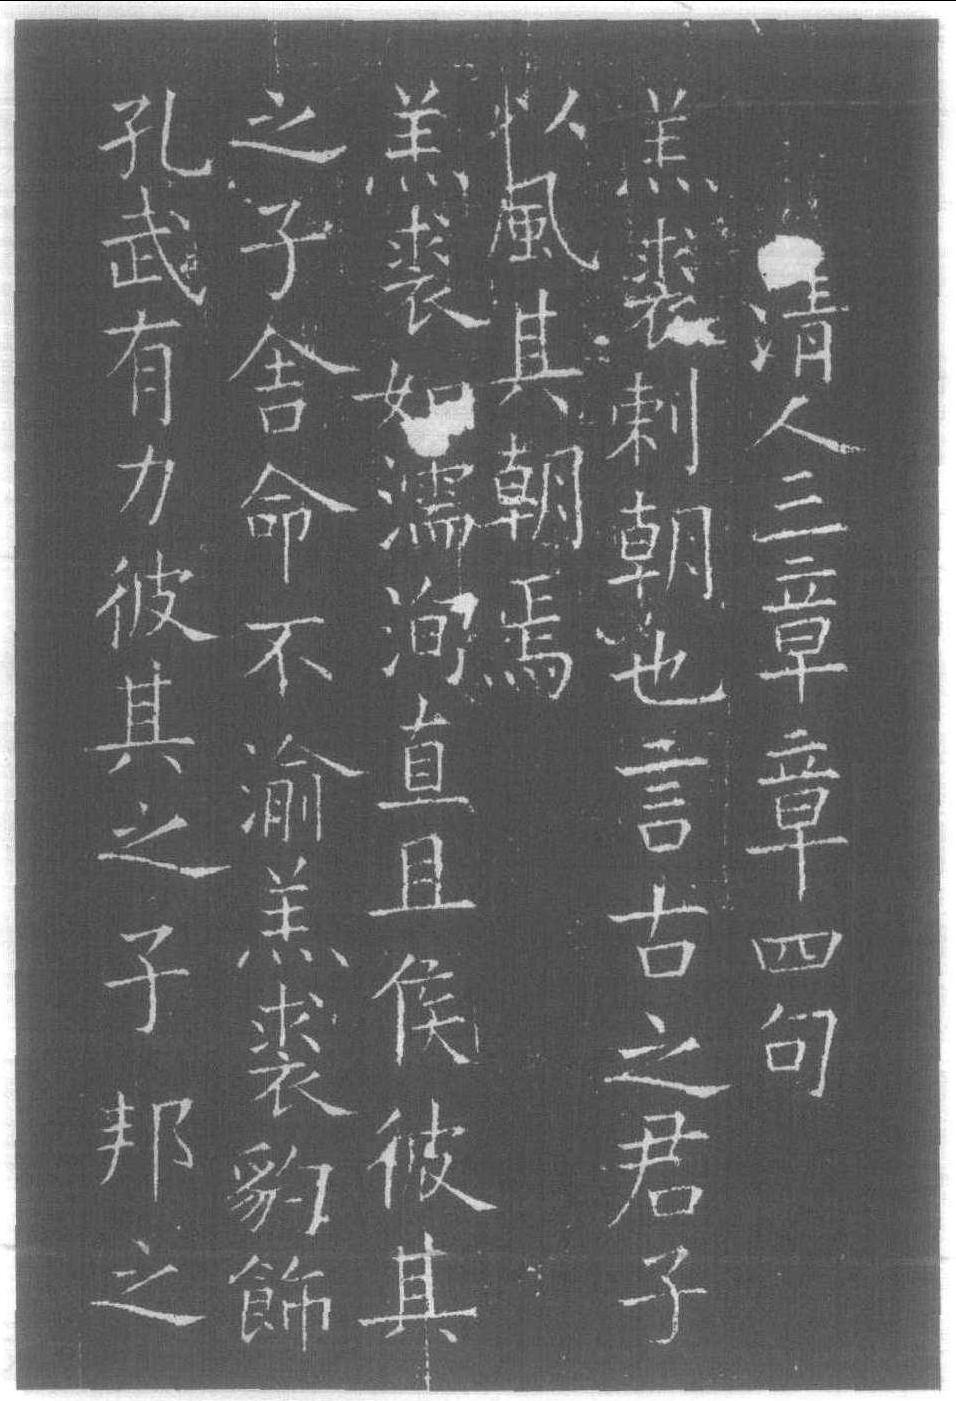 清人三章章四句
羔裘刺朝也言古之君子
以風其朝焉
羔裘如濡洵直且侯彼其
之子舍命不渝羔裘豹飾
孔武有力彼其之子邦之